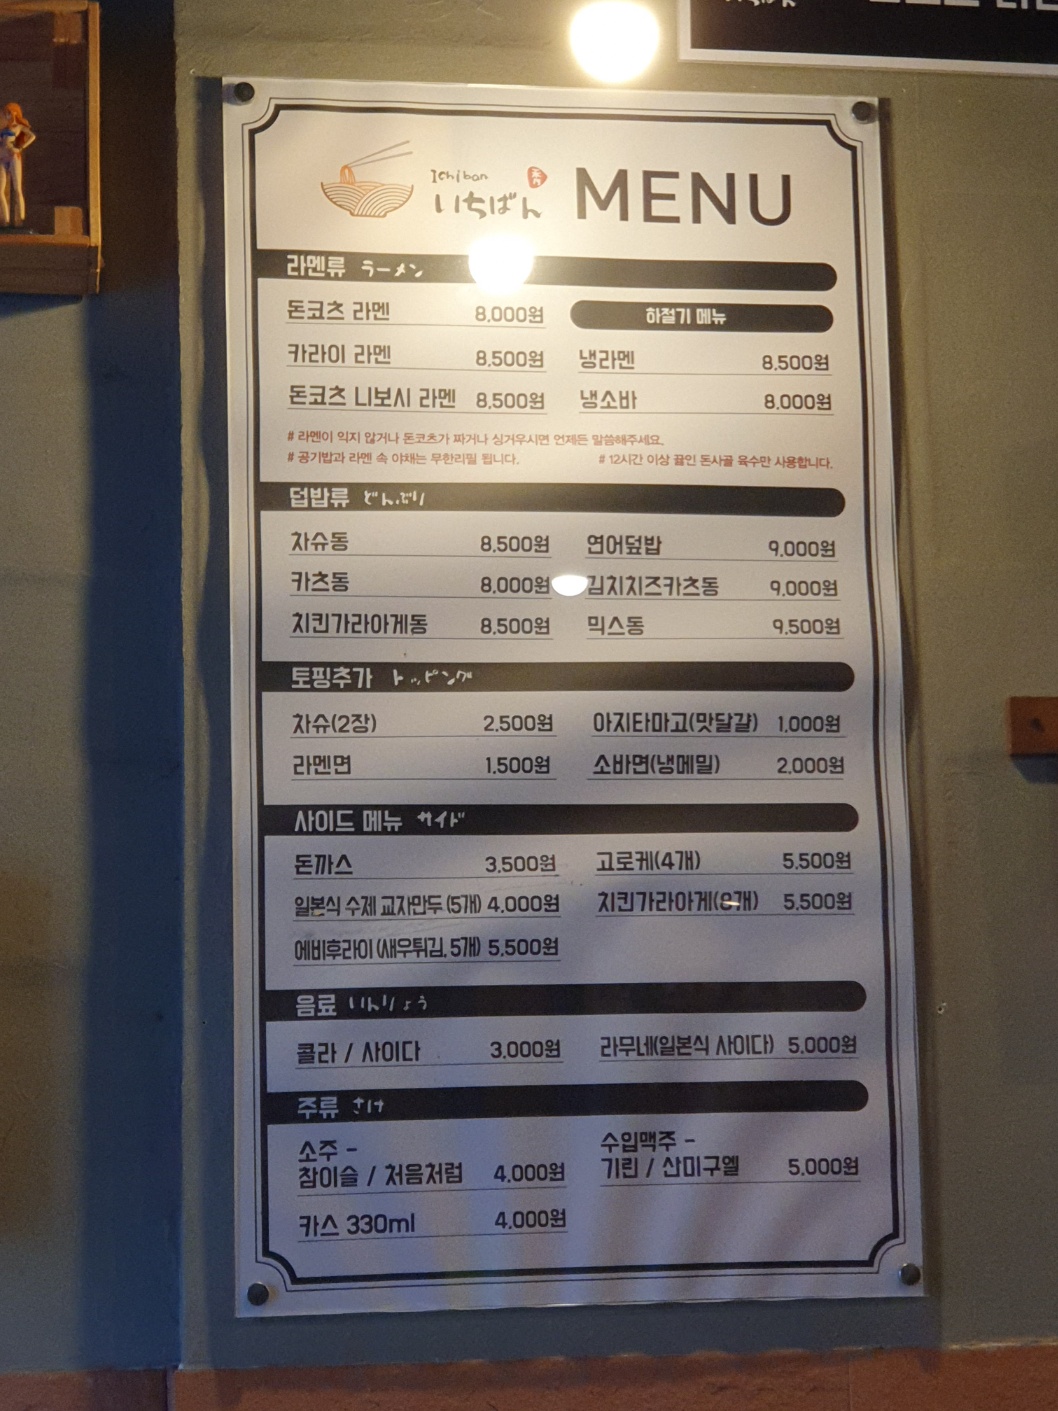 Ichiban
いちばん MENU
라멘류 ラーメン
돈코츠 라멘 8,000원
카라이 라멘 8,500원
돈코츠 니보시 라멘 8,500원
하절기 메뉴
냉라멘 8,500원
냉소바 8,000원
# 라멘이 익지 않거나 돈코츠가 짜거나 싱거우시면 언제든 말씀해주세요.
# 공기밥과 라멘 속 야채는 무한리필 됩니다. # 12시간 이상 끓인 돈사골 육수만 사용합니다.
덥밥류 どんぶり
차슈동 8,500원 연어덮밥 9,000원
카츠동 8,000원 김치치즈카츠동 9,000원
치킨가라아게동 8,500원 믹스동 9,500원
토핑추가 トッピング
차슈(2장) 2,500원 아지타마고(맛달걀) 1,000원
라멘면 1,500원 소바면(냉메밀) 2,000원
사이드 메뉴 サイド
돈까스 3,500원 고로케(4개) 5,500원
일본식 수제 교자만두 (5개) 4,000원 치킨가라아게(8개) 5,500원
에비후라이 (새우튀김, 5개) 5,500원
음료 いんりょう
콜라 / 사이다 3,000원 라무네(일본식 사이다) 5,000원
주류 さけ
소주 -
참이슬 / 처음처럼 4,000원
수입맥주 -
기린 / 산미구엘 5,000원
카스 330ml 4,000원